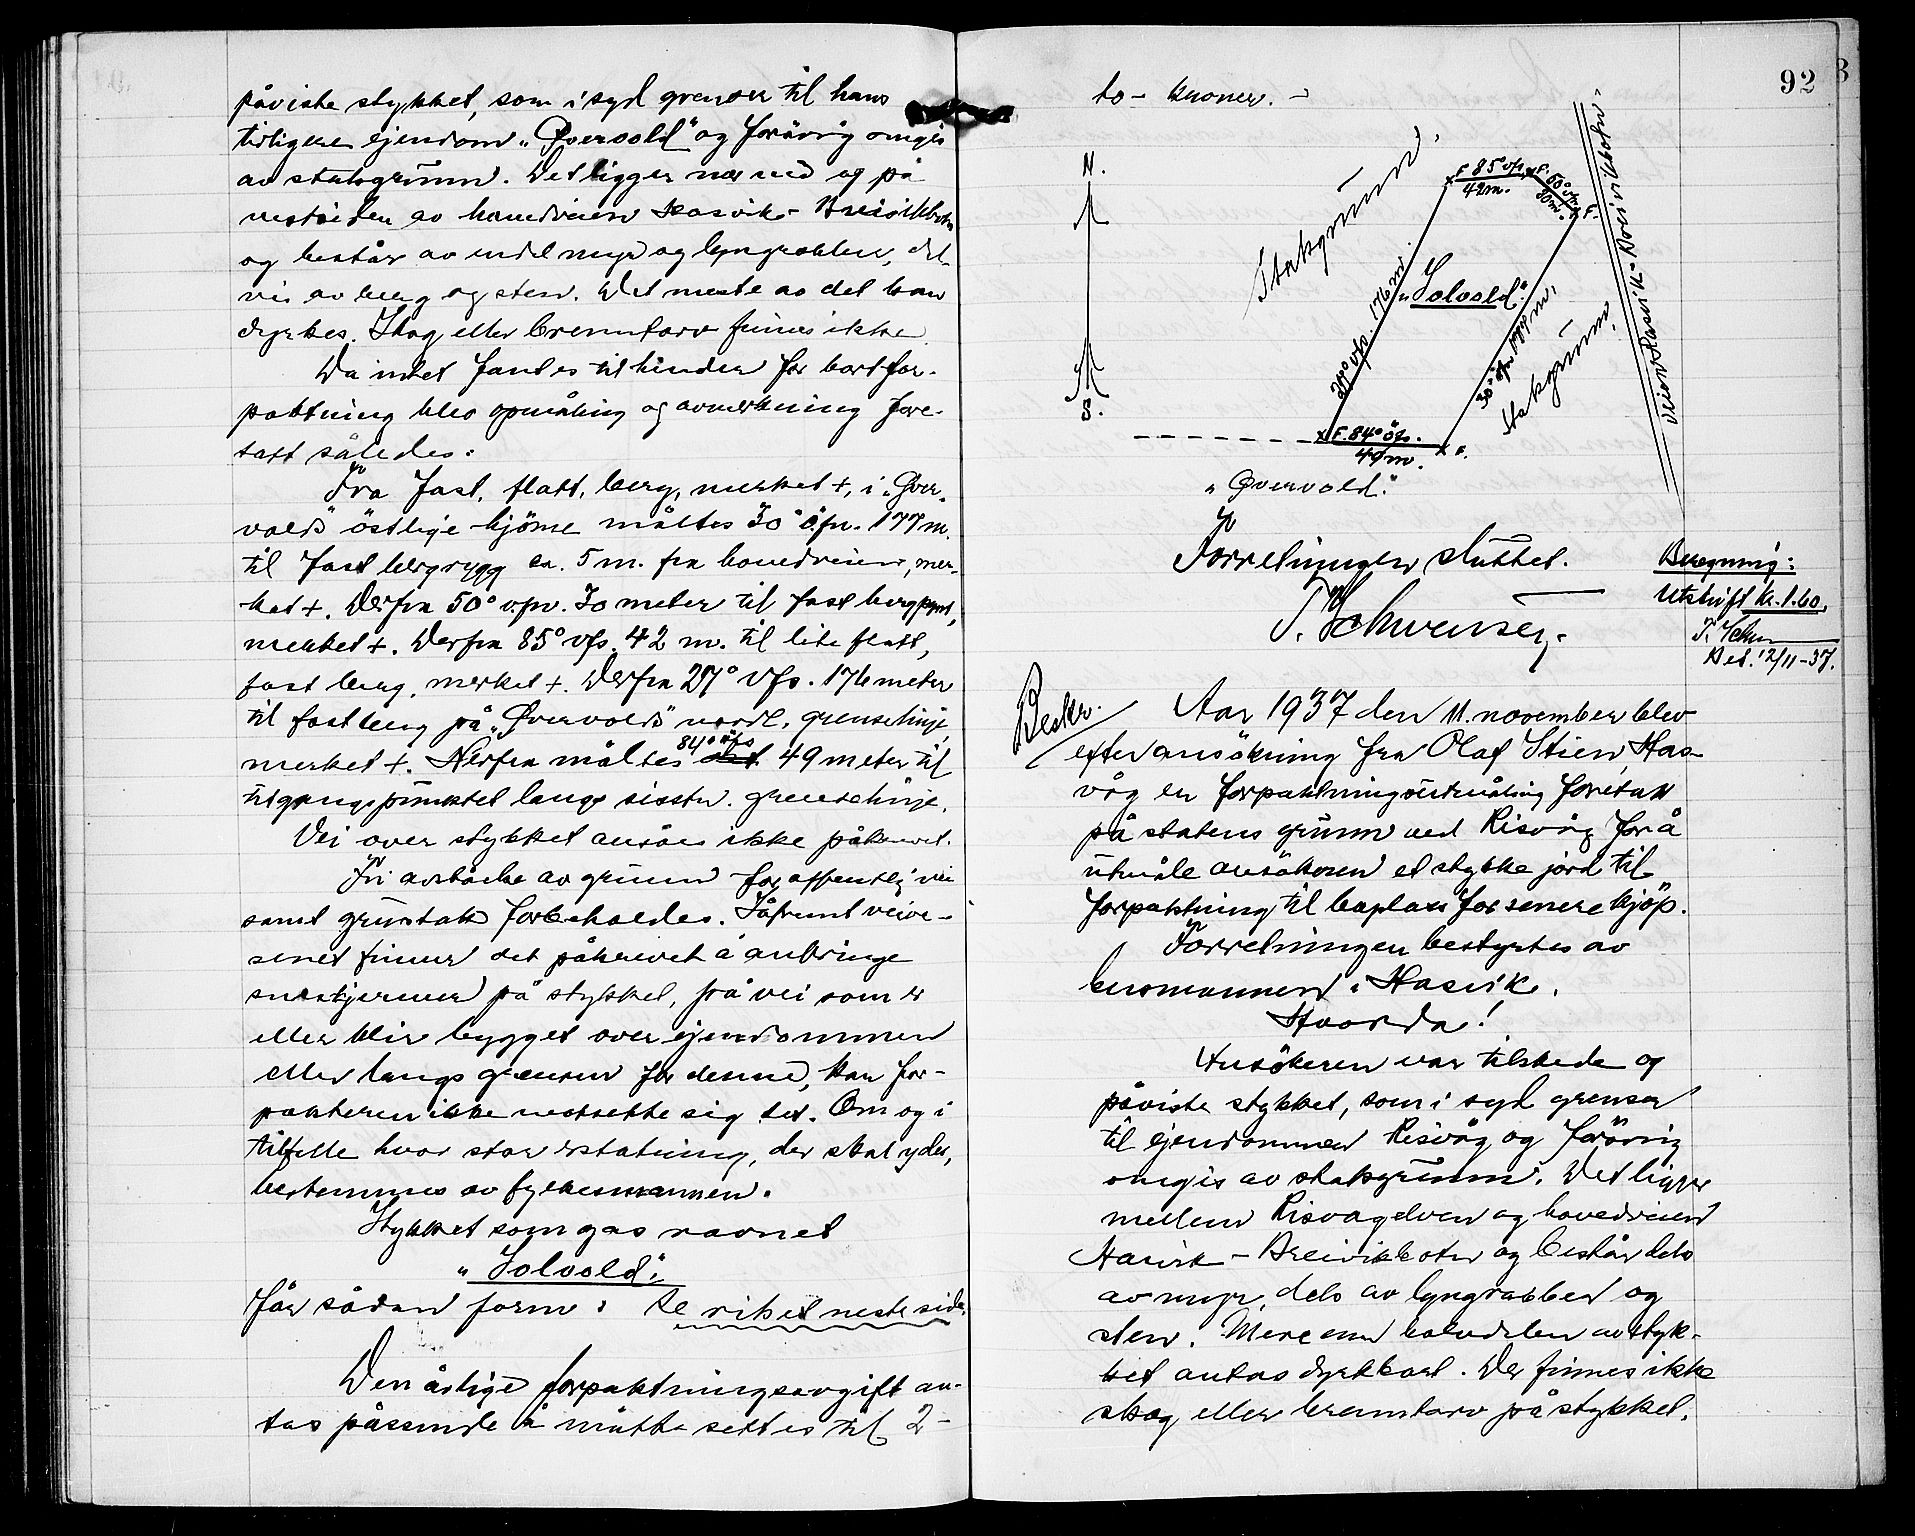 påviste stykket, som i syd grenser til hans
tidligere ejendom „Qvervold" og forövrig omgis
av statsgrunn. Det ligger nær ved og på
vestsiden av hovedveien Hasvik - Breivikbotn
og består av endel myr og lyngrabber, del-
vis av berg og sten. Det meste av det kan
dyrkes. Skog eller brenntorv finnes ikke.
Da intet fantes til hinder for bortfor-
paktning blev opmåling og avmerkning fore-
tatt således:
Fra fast, flatt, berg, merket +, i „Qver-
volds" östlige hjörne måltes 30° öfn. 177 m.
til fast bergrygg ca. 5 m. fra hovedveien, mer-
ket +. Derfra 50° vfn. 30 meter til fast bergpynt,
merket +. Derfra 85° vfs. 42 m. til lite flatt,
fast berg, merket +. Derfra 27° vfs. 176 meter
til fast berg på „Qvervolds" nordl. grenselinje,
merket +. Derfra måltes 84° öfs 49 meter til
utgangspunktet langs sisstn. grenselinje.
Vei over stykket ansåes ikke påkrevet.
Fri avståelse av grunn for offentlig vei
samt grustak forbeholdes. Såfremt veive-
senet finner det påkrevet å anbringe
sneskjermer på stykket, på vei som er
eller blir bygget over ejendommen
eller langs grensen for denne, kan for-
pakteren ikke motsette sig det. Om og i
tilfelle hvor stor erstatning, der skal ydes,
bestemmes av fylkesmannen.
Stykket som gas navnet
„Solvold".
får sådan form: Se risset neste side.
Den årlige forpaktningsavgift an-
tas passende å måtte settes til 2 -
92
to - kroner. -
N.
S.
Statsgrunn.
F. 85° vfs.
42 m.
F. 50° vfn.
30 m.
F.
27° vfs. 176 m.
„Solvold".
30° öfn. 177 m.
Statsgrunn.
Veien Hasvik - Breivikbotn.
F. 84° öfs.
49 m.
F.
„Qvervold".
Forretningen sluttet.
Beregning:
Utskrift kr. 1.60.
Bet. 12/11-37.
Beskr.
Aar 1937 den 11. november blev
efter ansökning fra Olaf Stien, Has-
våg en forpaktningsutmåling foretatt
på statens grunn ved Risvåg for å
utmåle ansökeren et stykke jord til
forpaktning til boplass for senere kjöp.
Forretningen bestyrtes av
lensmannen i Hasvik.
Hvorda!
Ansökeren var tilstede og
påviste stykket, som i syd grenser
til ejendommen Risvåg og forövrig
omgis av statsgrunn. Det ligger
mellem Risvagelven og hovedveien
Hasvik - Breivikbotn og består dels
av myr, dels av lyngrabber og
sten. Mere enn halvdelen av styk-
ket antas dyrkbart. Der finnes ikke
skog eller brenntorv på stykket.